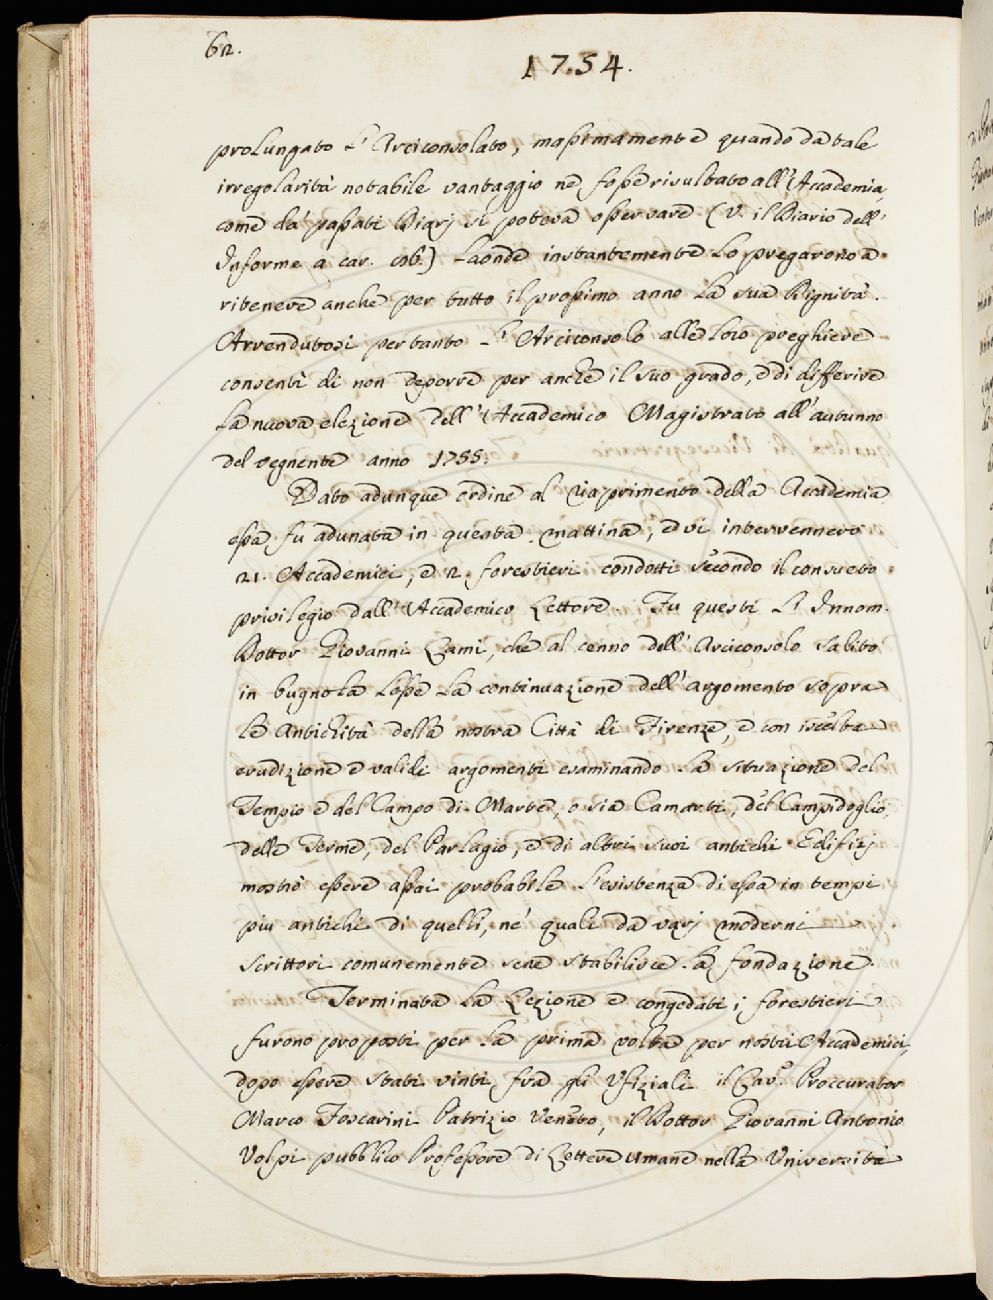 62.
1754.
prolungato l'Arciconsolato, massimamente quando da tale
irregolarità notabile vantaggio ne fosse risultato all'Accademia,
come da' passati Diarj si poteva osservare (V. il Diario dell'
Informe a car. 106.) Laonde instantemente lo pregarono a
ritenere anche per tutto il prossimo anno la sua Dignità.
Arrendutosi pertanto l'Arciconsolo alle loro preghiere
consentì di non deporre per anche il suo grado, e di differire
la nuova elezione dell'Accademico Magistrato all'autunno
del vegnente anno 1755.
Dato adunque ordine al riaprimento della Accademia
essa fu adunata in questa mattina, e vi intervennero
21. Accademici, e 2. forestieri condotti secondo il consueto
privilegio dall'Accademico Lettore. Fu questi l'Innom.
Dottor Giovanni Lami, che al cenno dell'Arciconsolo salito
in bugnola lesse la continuazione dell'argomento sopra
le Antichità della nostra Città di Firenze, e con iscelta
erudizione e validi argomenti esaminando la situazione del
Tempio e del Campo di Marte, o sia Camarti, del Campidoglio,
delle Terme, del Parlagio, e di altri suoi antichi Edifizj
mostrò essere assai probabile l'esistenza di essa in tempi
piu antichi di quelli, ne' quali da varj moderni
scrittori comunemente sene stabilisce la fondazione.
Terminata la Lezione e congedati i forestieri
furono proposti per la prima volta per nostri Accademici,
dopo essere stati vinti fra gli Ufiziali il Cav.e Proccurator
Marco Foscarini Patrizio Veneto, il Dottor Giovanni Antonio
Volpi pubblico Professore di Lettere umane nella Università